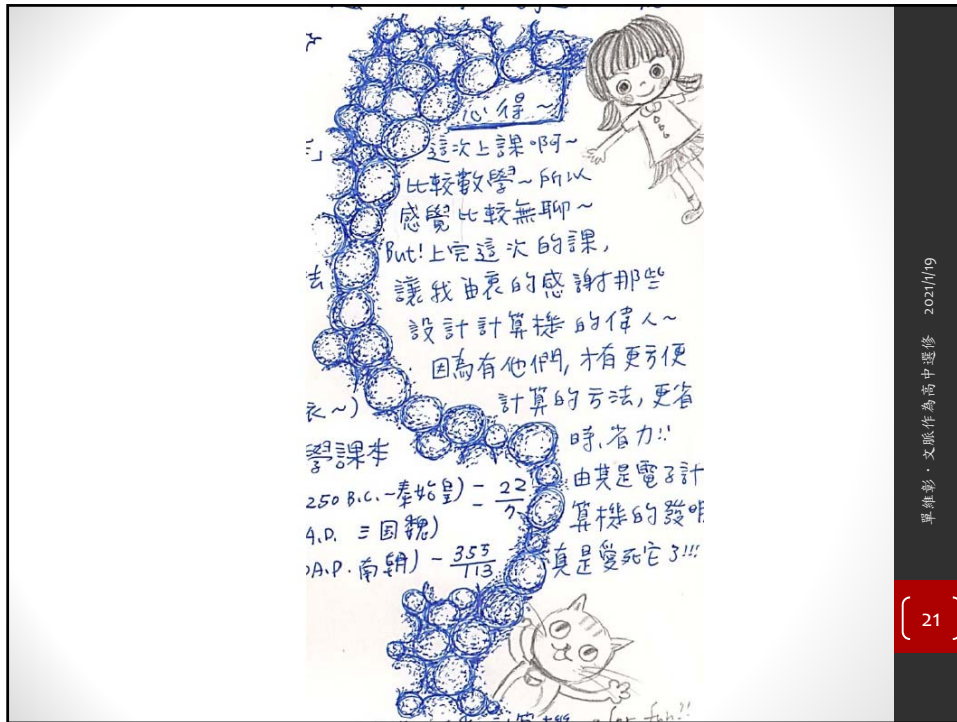 心得~
這次上課啊~
比較數學~所以
感覺比較無聊~
But!上完這次的課,
讓我由衷的感謝那些
設計計算機的偉人~
因為有他們,才有更方便
計算的方法,更省
時、省力!!
由其是電子計
算機的發明
真是愛死它了!!!
法
衣~)
學課本
250 B.C.-秦始皇) = 22/7
A.D. 三国魏)
A.D. 南朝) - 355/113
for fun!!
單維彰・文脈作為高中選修 2021/1/19
21